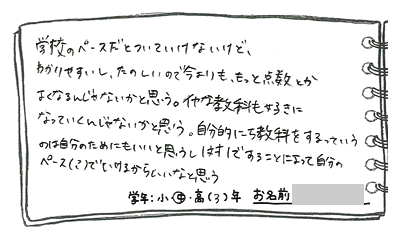 学校のペースだとついていけないけど、
わかりやすいし、たのしいので今よりも、もっと点数とか
よくなるんじゃないかと思う。イヤな教科も好きに
なっていくんじゃないかと思う。自分的に5教科をするっていう
のは自分のためにもいいと思うし1対1ですることによって自分の
ペース(?)でいけるからいいなと思う
学年:小・中・高(3)年 お名前